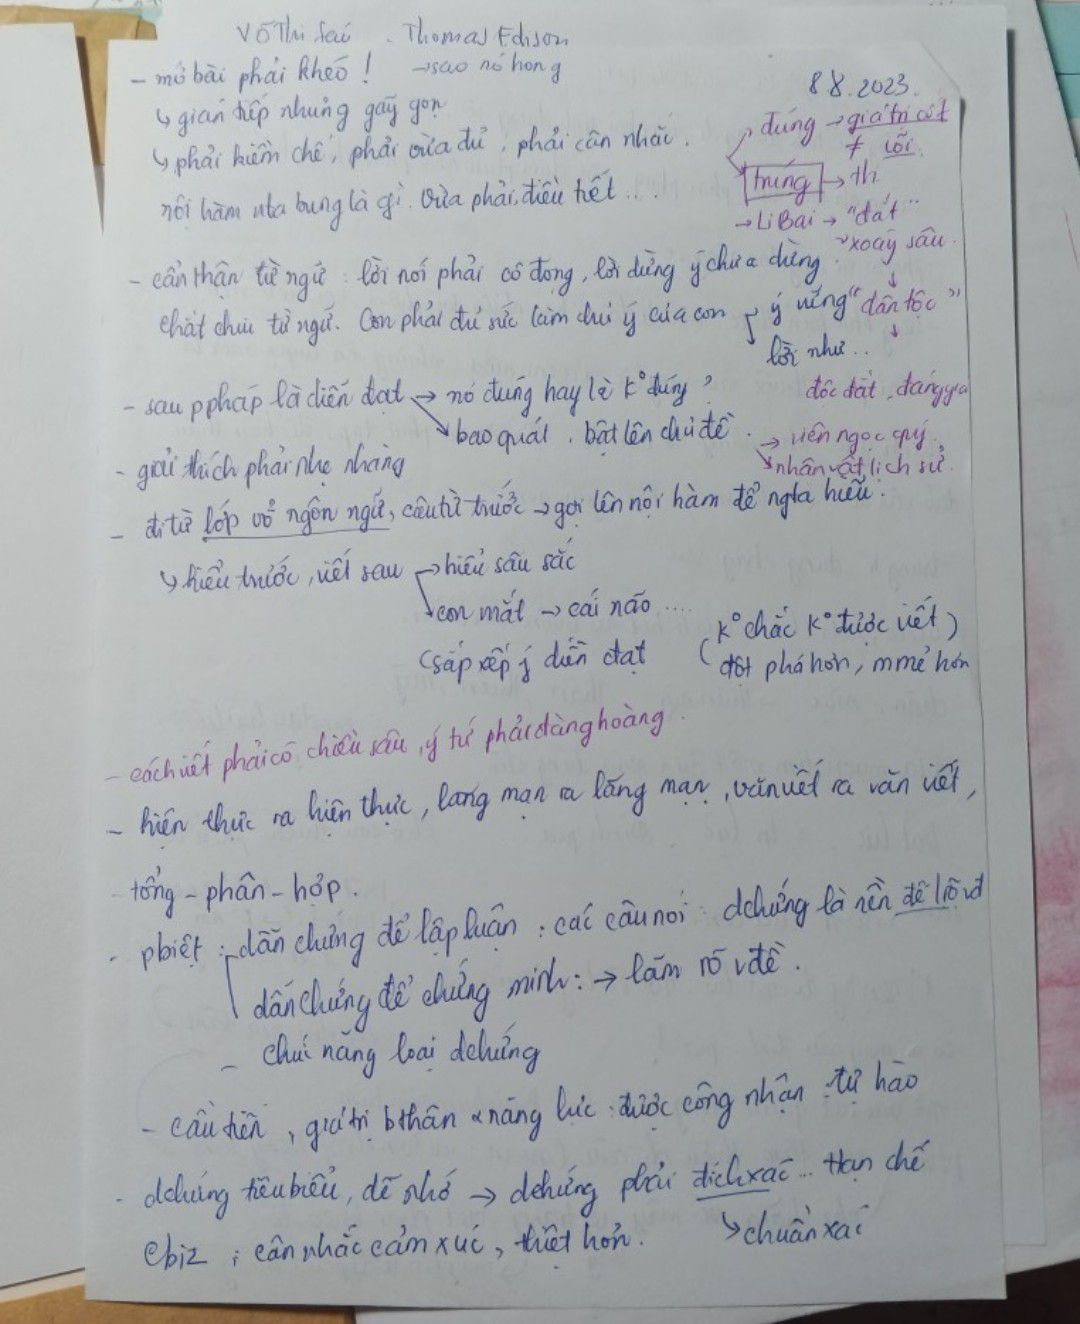 Võ Thị Sáu . Thomas Edison
- mở bài phải khéo ! → sao nó hong
8.8.2023.
↳ gián tiếp nhưng gãy gọn
↳ phải kiềm chế, phải vừa đủ, phải cân nhắc.
đúng → giá trị cốt lõi.
≠
trúng → th
nội hàm bung là gì. Vừa phải, điều tiết...
→ Li Bai → "đất"
xoáy sâu.
- cẩn thận từ ngữ : lời nói phải cô đọng, lời dừng ý chưa dừng
chắt chiu từ ngữ. Con phải đủ sức làm chủ ý của con
ý vững
lời như..
"dân tộc"
độc đắt, đáng giá
- sau ppháp là diễn đạt → nó đúng hay là k° đúng ?
bao quát, bật lên chủ đề.
→ viên ngọc quý
nhân vật lịch sử.
- giải thích phải nhẹ nhàng
- đi từ lớp vỏ ngôn ngữ, câu từ trước → gợi lên nội hàm để ngta hiểu.
↳ hiểu trước, viết sau → hiểu sâu sắc
con mắt → cái não ....
(sắp xếp ý diễn đạt
(k° chắc k° được viết)
đột phá hơn, mmẻ hơn
- cách viết phải có chiều sâu, ý tứ phải đàng hoàng.
- hiện thực ra hiện thực, lãng mạn ra lãng mạn, văn viết ra văn viết,
- tổng - phân - hợp.
- pbiệt : dẫn chứng để lập luận : các câu nói : dchứng là nền để
dẫn chứng để chứng minh : → làm rõ vđề.
- chức năng loại dchứng
- cầu tiến, giá trị bthân & năng lực : được công nhận : tự hào
- dchứng tiêu biểu, dễ nhớ → dchứng phải đích xác... Hạn chế
→ chuẩn xác
cbiz ; cân nhắc cảm xúc, thiệt hơn.